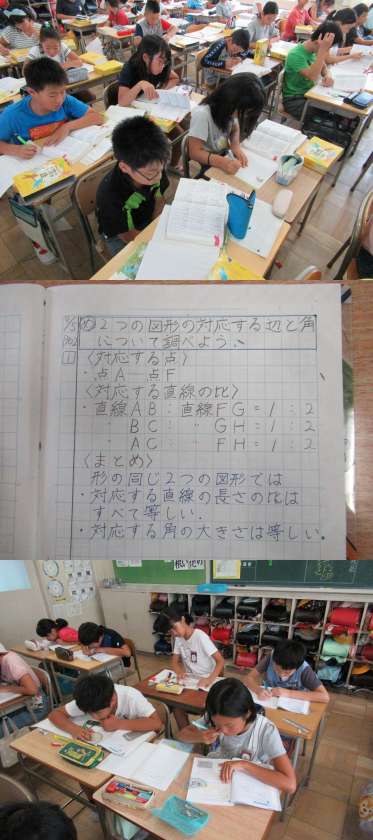 め 2つの図形の対応する辺と角
について調べよう。
1 〈対応する点〉
・点A―点F
〈対応する直線の比〉
・直線AB:直線FG=1:2
・ BC: GH=1:2
・ AC: FH=1:2
〈まとめ〉
形の同じ2つの図形では
・対応する直線の長さの比は
すべて等しい.
・対応する角の大きさは等しい。